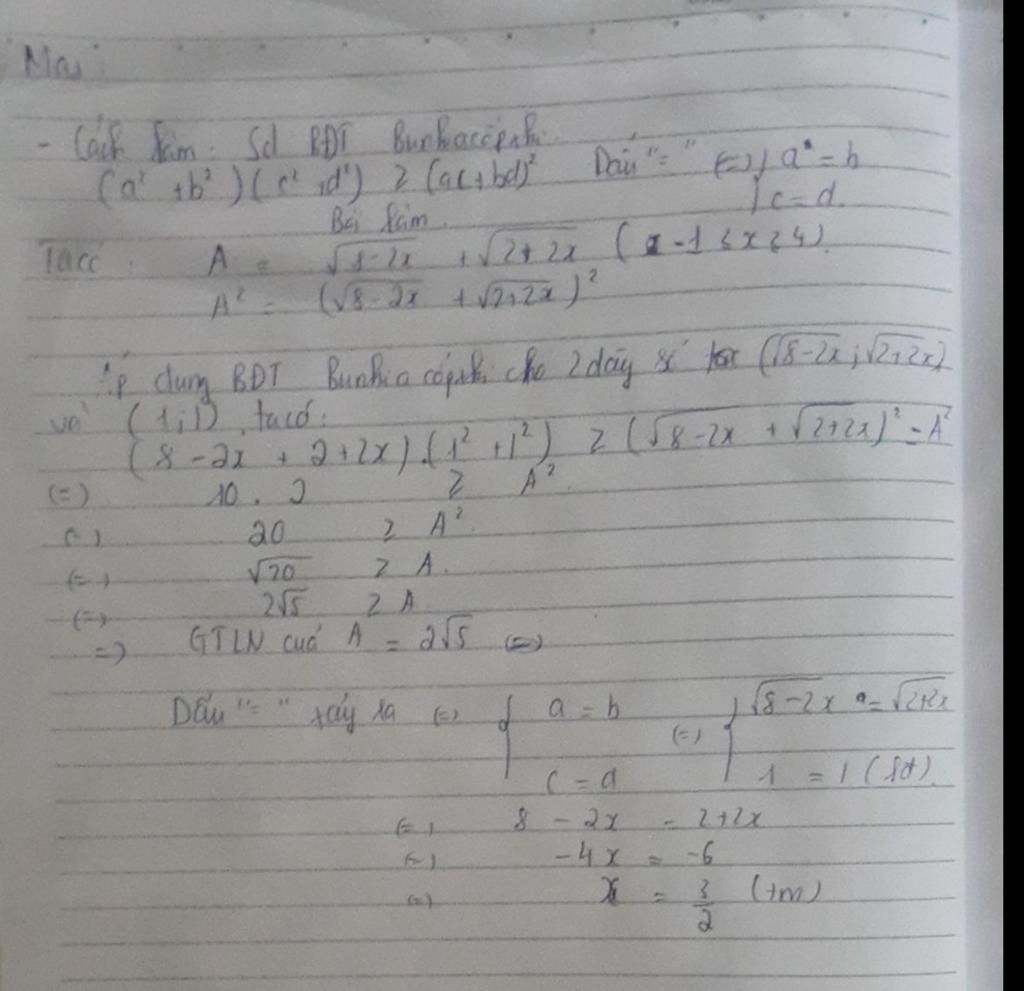 Max :
- Cách làm : Sd BĐT Bunhiacôpxki.
(a² + b²)(c² + d²) ≥ (ac+bd)² Dấu "=" (=) { a = b
c = d.
Bài làm.
Ta có : A = √8-2x + √2+2x ( -1 ≤ x ≤ 4).
A² = (√8-2x + √2+2x)²
Áp dụng BĐT Bunhiacôpxki cho 2 dãy số (√8-2x ; √2+2x)
và (1;1) ta có:
(8-2x + 2+2x).(1² + 1²) ≥ (√8-2x + √2+2x)² = A²
(=) 10 . 2 ≥ A².
(=) 20 ≥ A².
(=) √20 ≥ A.
(=) 2√5 ≥ A
=) GTLN của A = 2√5 (=)
Dấu "=" xảy ra (=) { a = b (=) { √8-2x = √2+2x
c = d 1 = 1 (lđ).
(=) 8 - 2x = 2+2x
(=) -4x = -6
(=) x = 3/2 (tm)